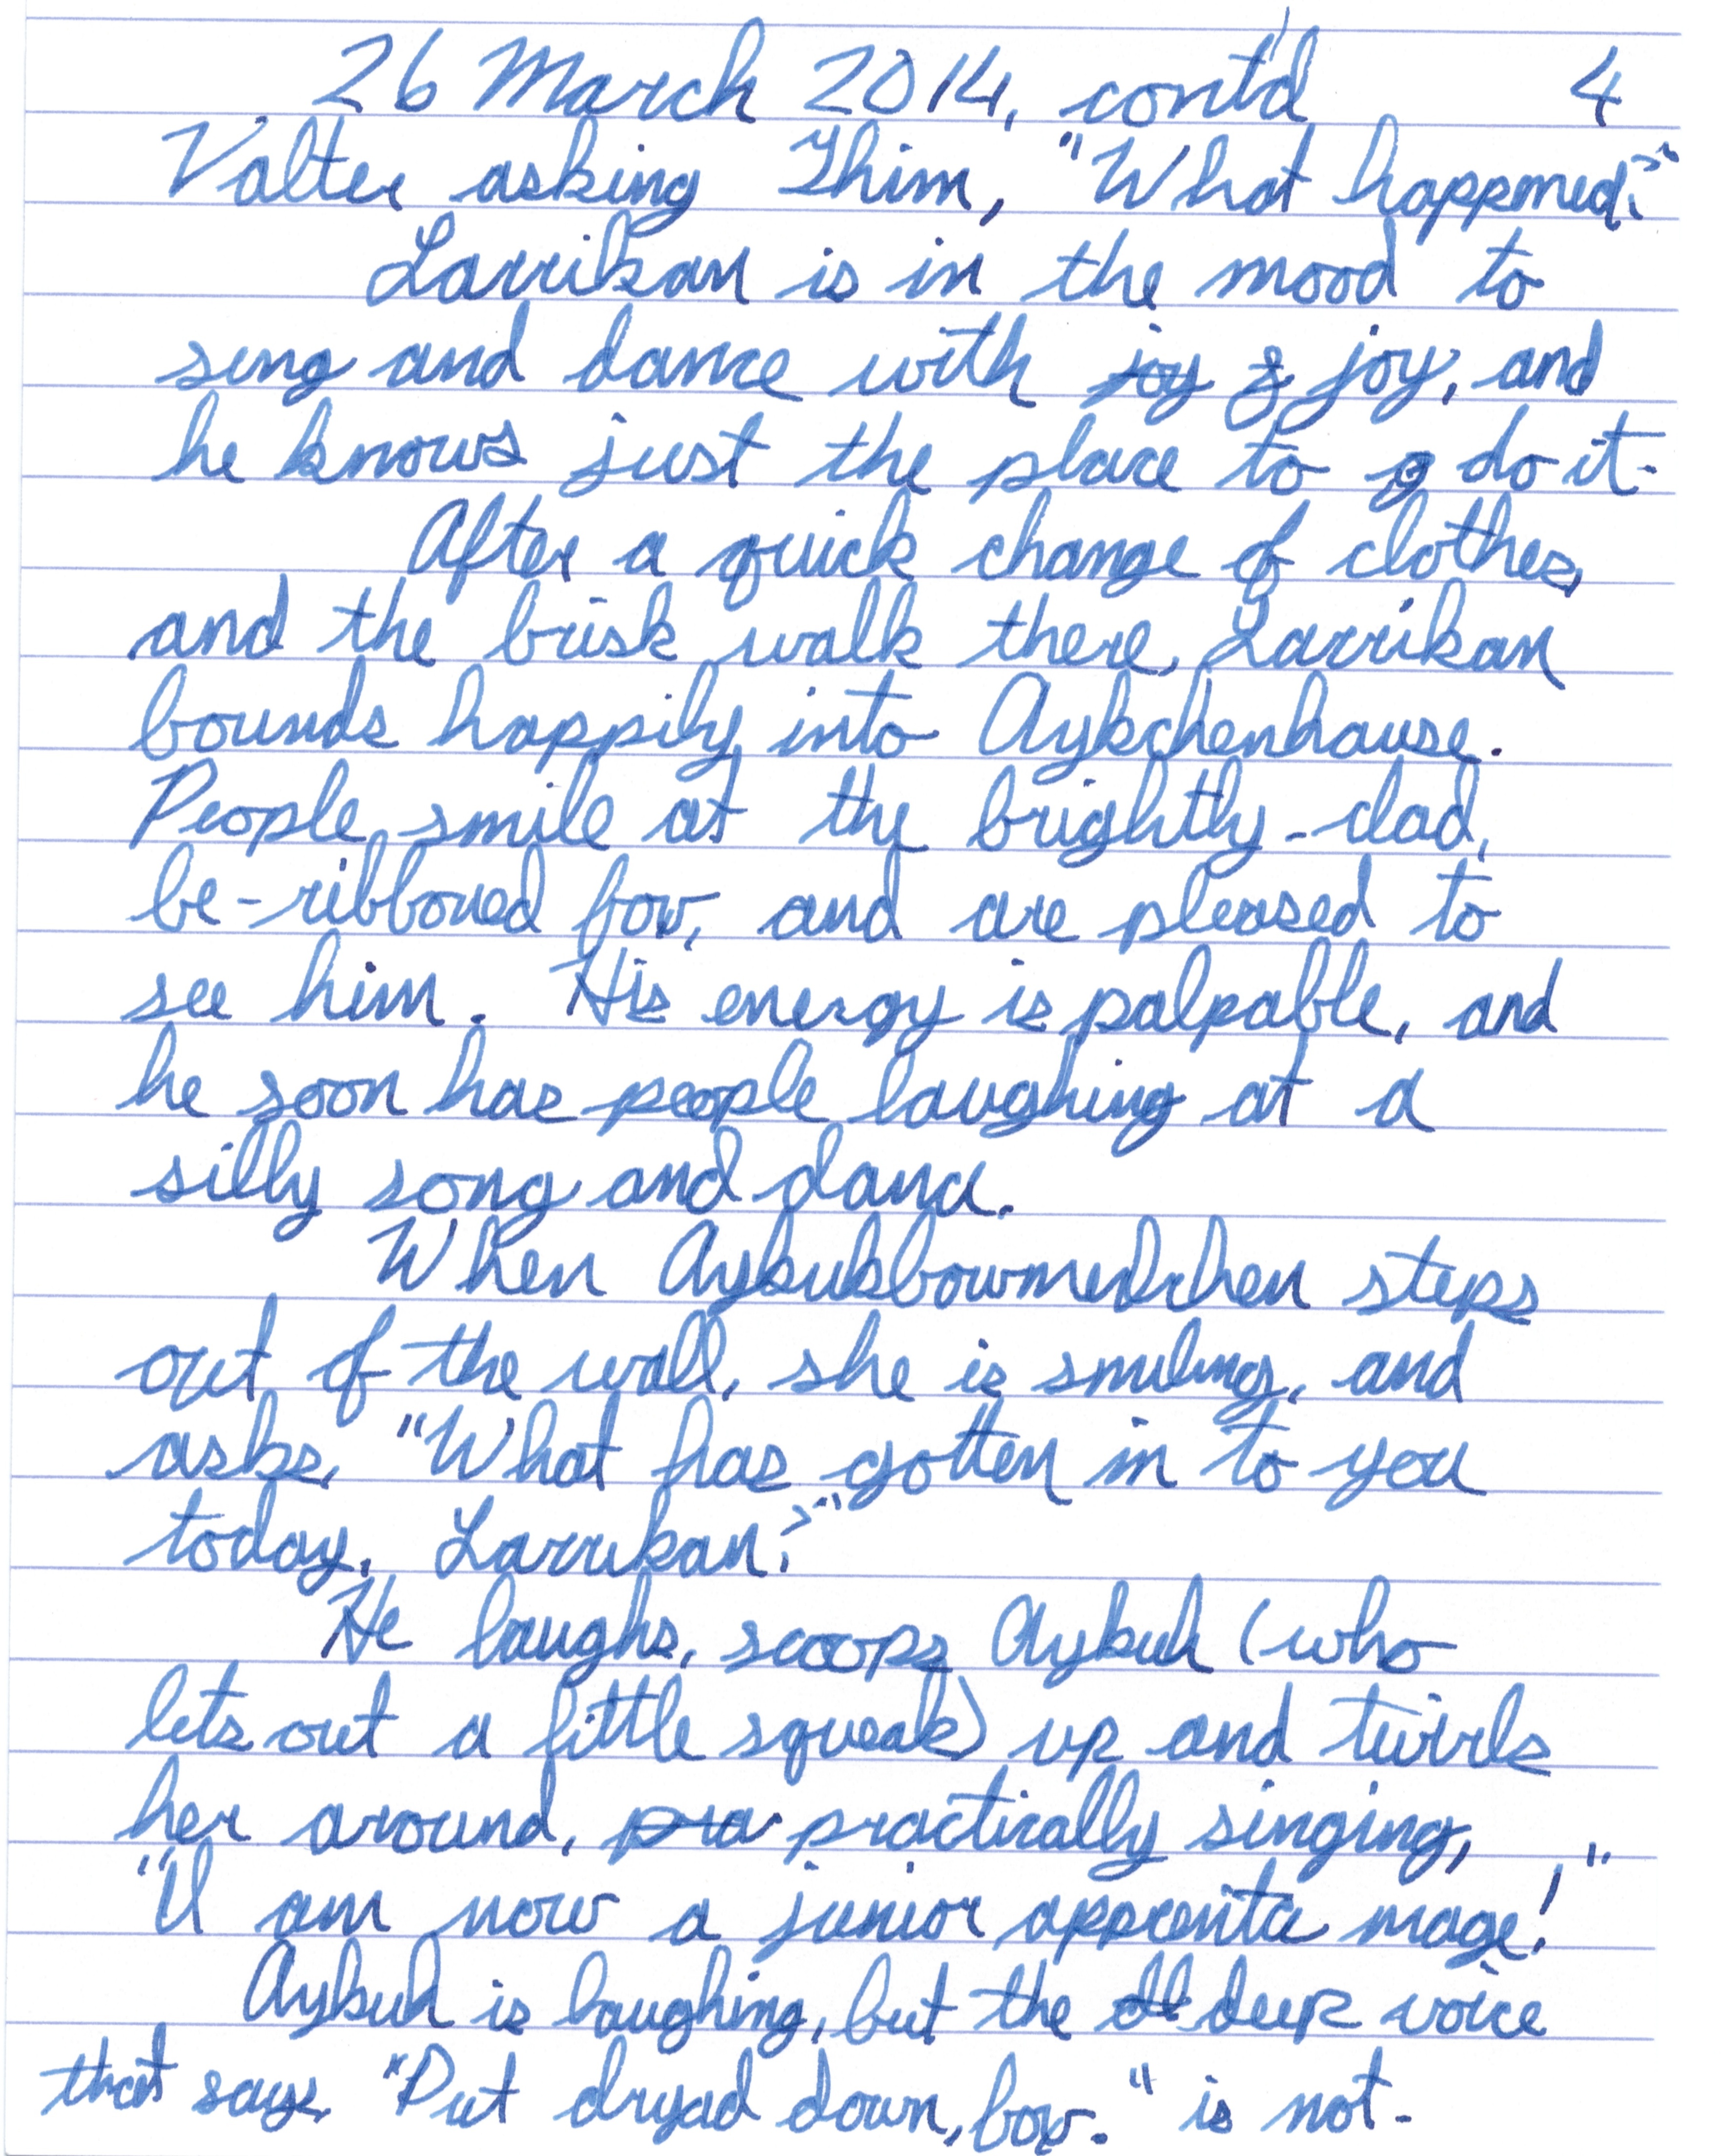 26 March 2014, cont'd 4
Valter asking Thim, "What happened?"
Larrikan is in the mood to
sing and dance with joy & joy, and
he knows just the place to g do it.
After a quick change of clothes,
and the brisk walk there, Larrikan
bounds happily into Aykchenhause.
People smile at the brightly-clad,
be-ribboned boy, and are pleased to
see him. His energy is palpable, and
he soon has people laughing at a
silly song and dance.
When Aykukbowmenchen steps
out of the wall, she is smiling, and
asks, "What has gotten in to you
today, Larrikan?"
He laughs, scoops Aykuh (who
lets out a little squeak) up and twirls
her around, pra practically singing,
"I am now a junior apprentice mage!"
Aykuh is laughing, but the deep voice
that says "Put dryad down, boy." is not.